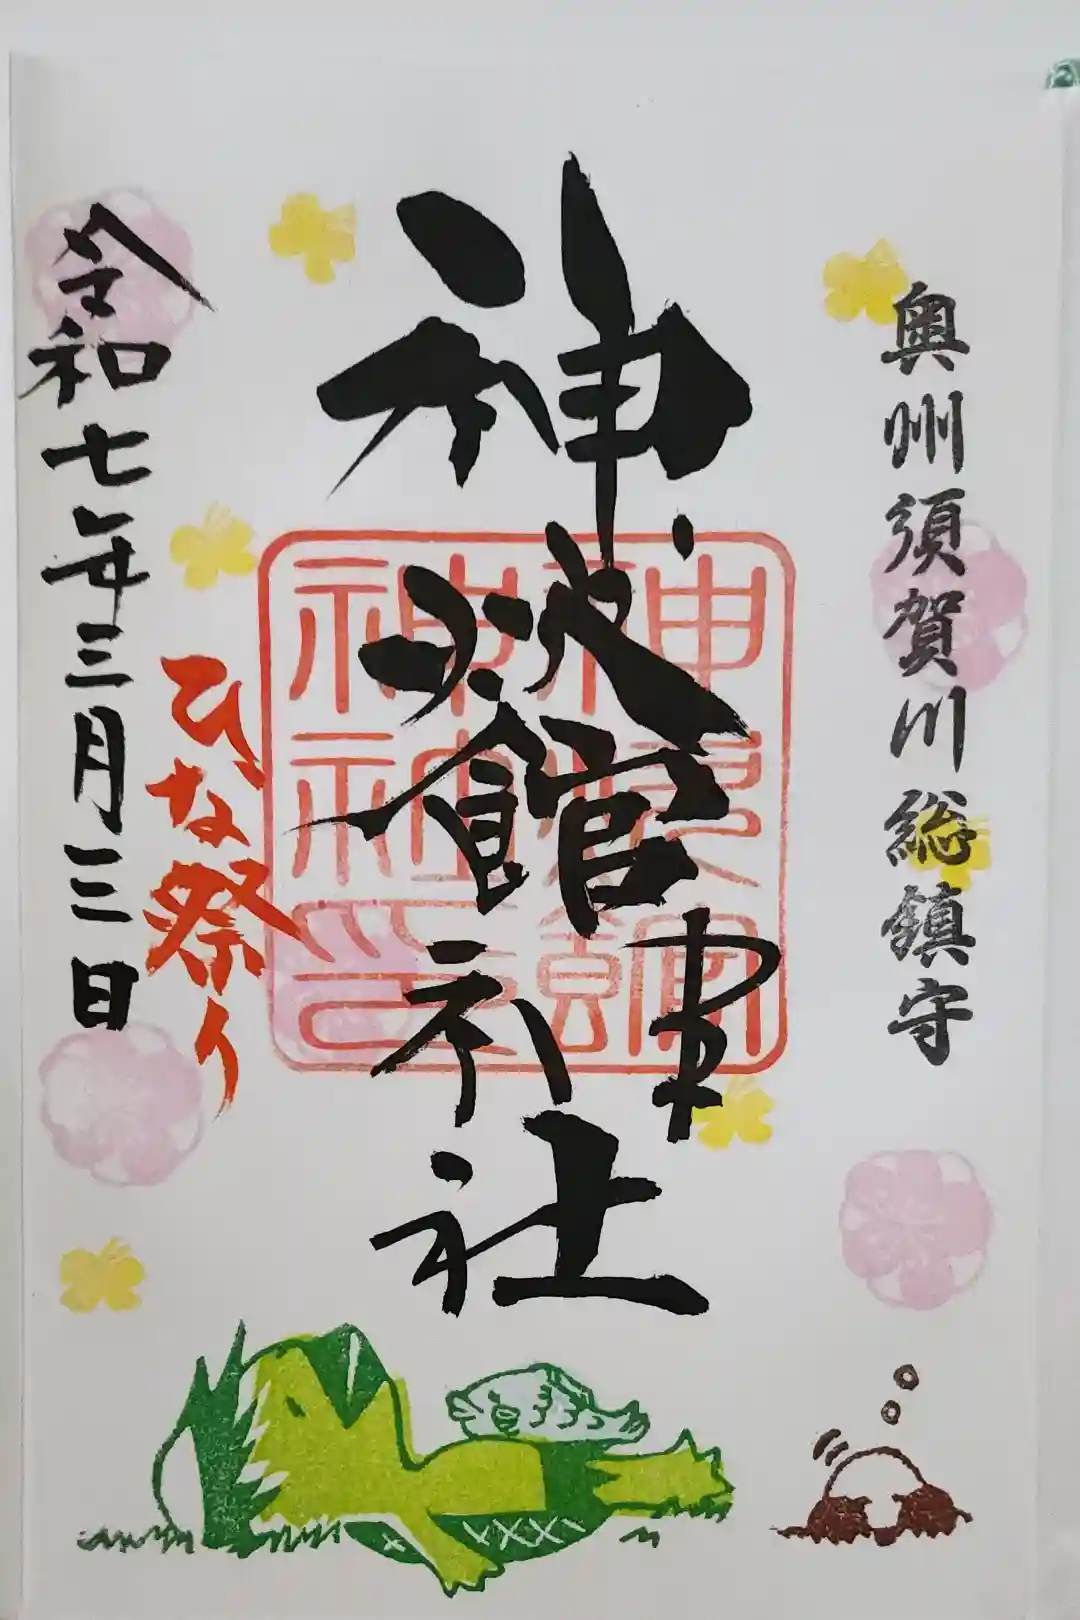 奥州須賀川総鎮守
神炊館神社
神炊館
神社印
ひな祭り
令和七年三月三日